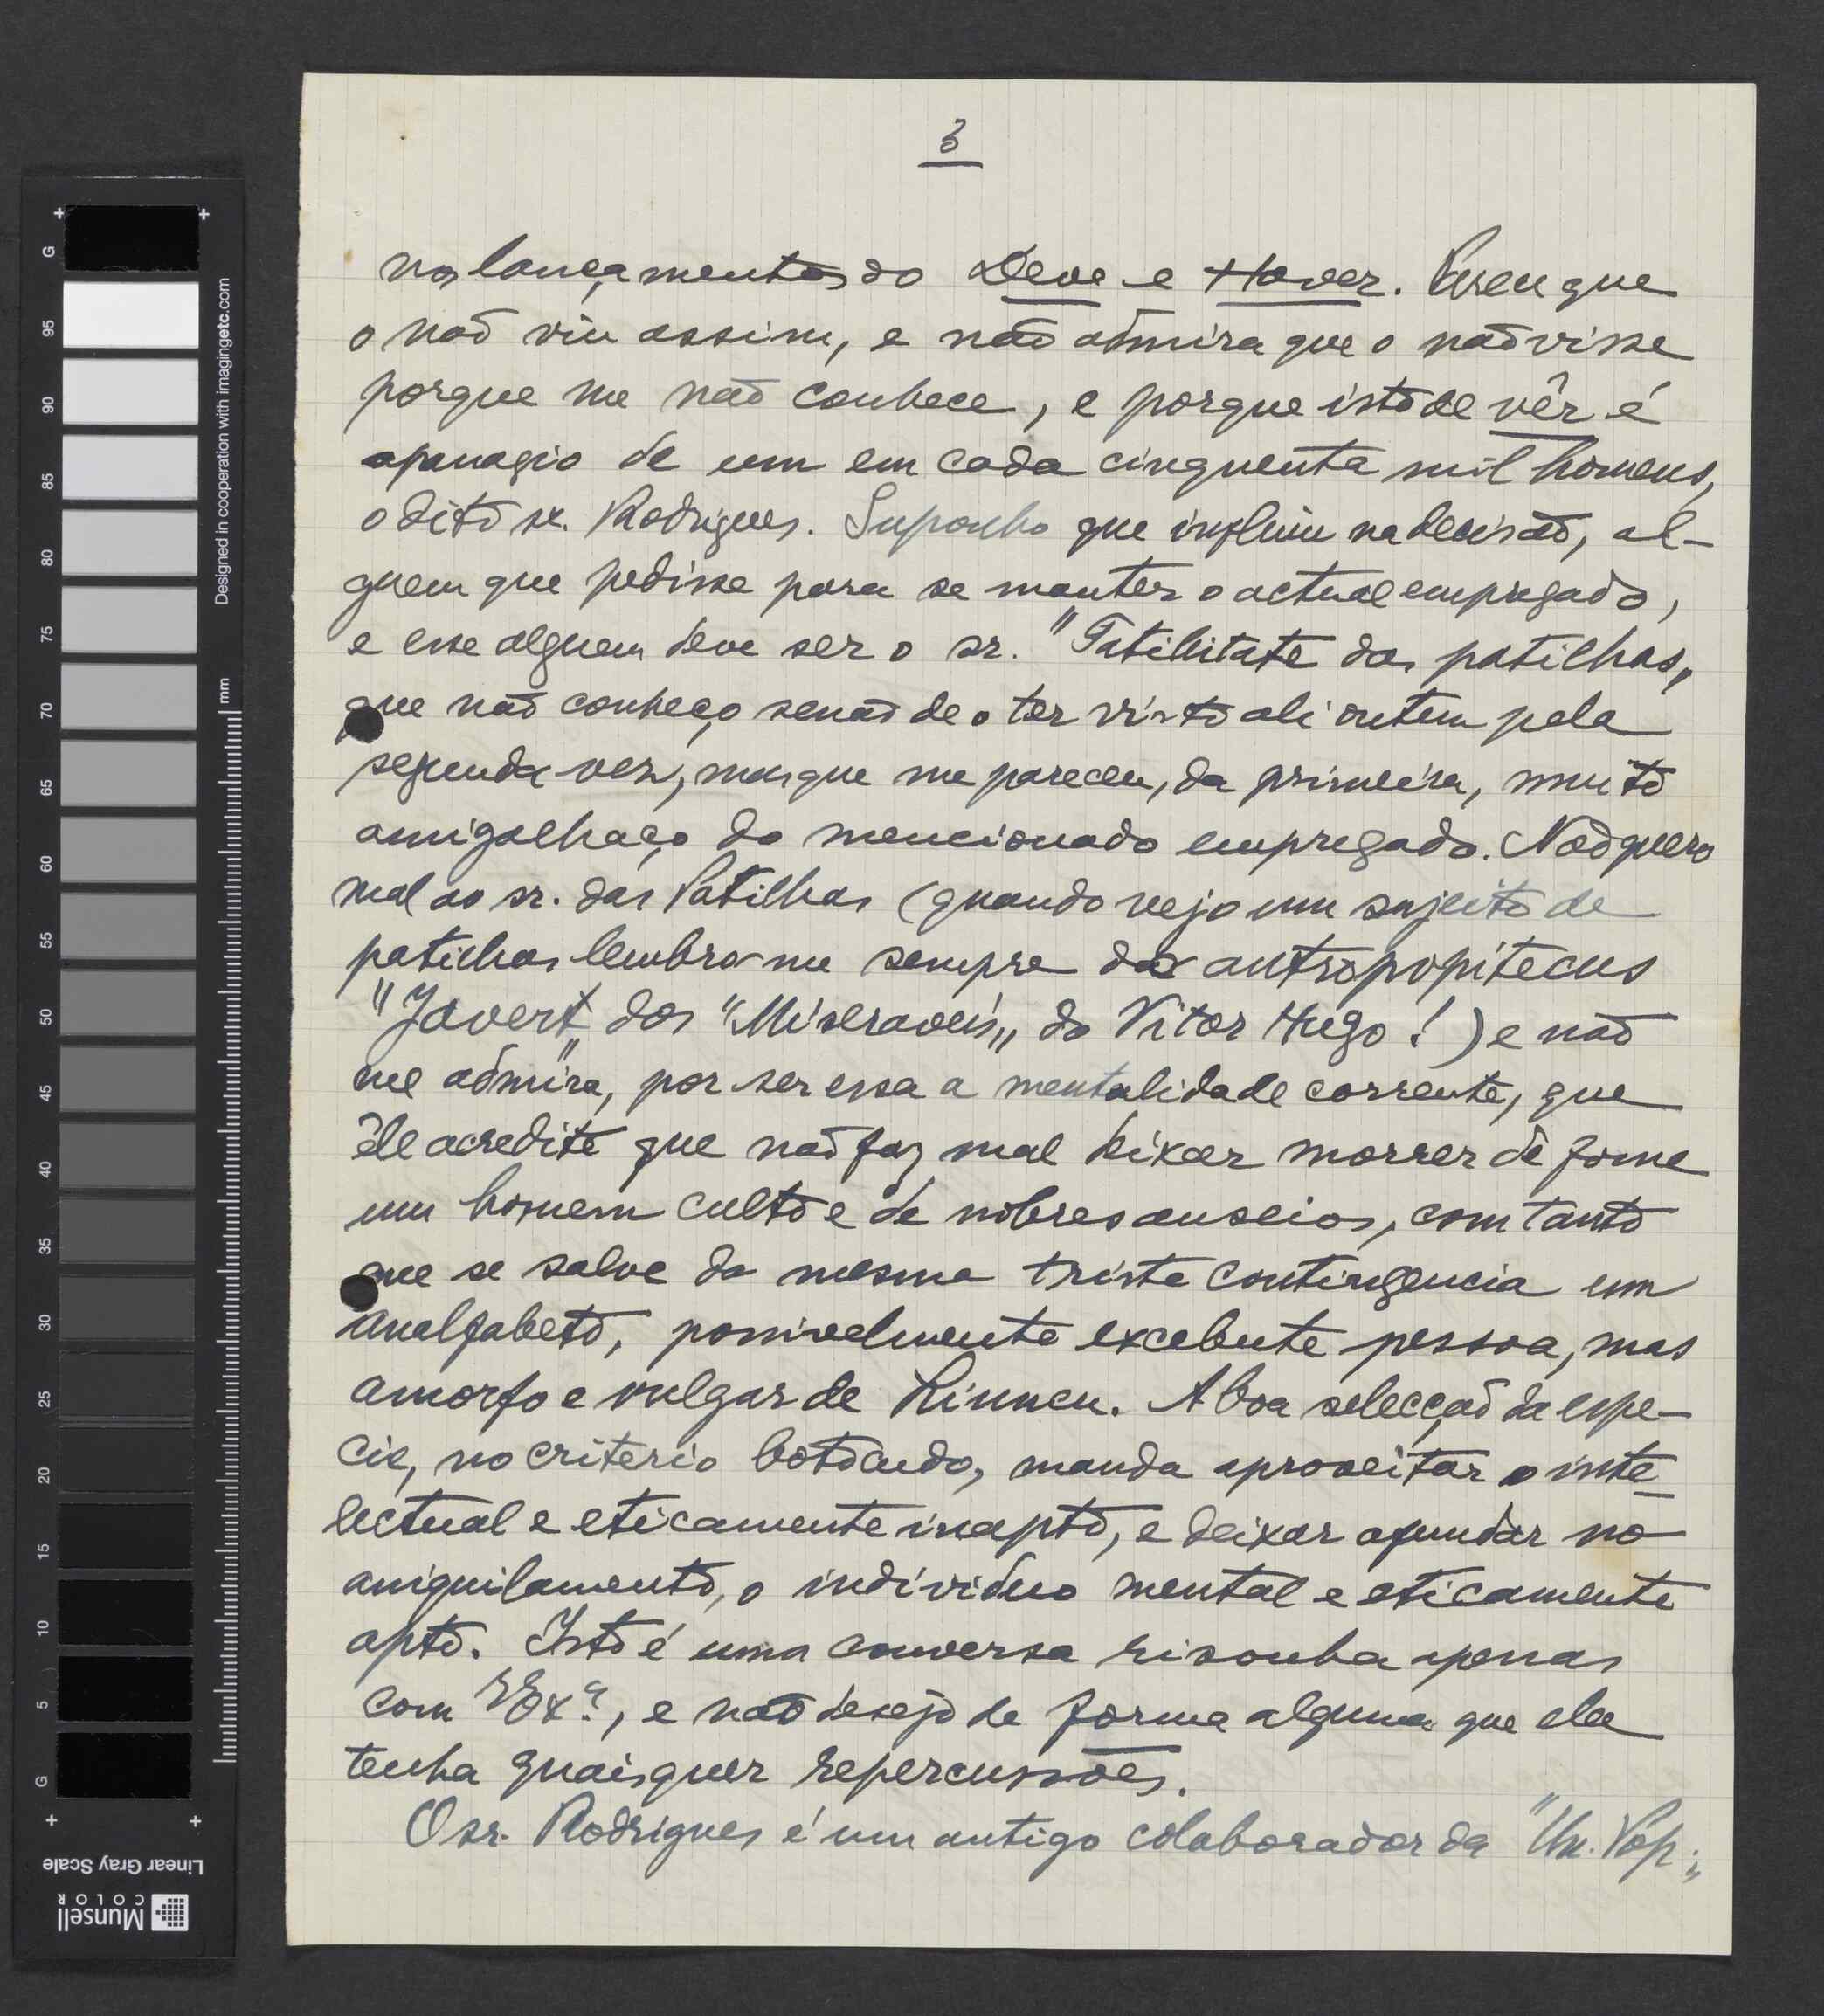 3
nos lançamentos do Deve e Haver. Creu que
o não viu assim, e não admira que o não visse
porque me não conhece, e porque isto de vêr é
apanagio de um em cada cinquenta mil homens,
o dito sr. Rodrigues. Suponho que influiu na decisão, al-
guem que pedisse para se manter o actual empregado,
e esse alguem deve ser o sr. "Tatibitate das patilhas„
que não conheço senão de o ter visto ali ontem pela
segunda vez, mas que me pareceu, da primeira, muito
amigalhaço do mencionado empregado. Não quero
mal ao sr. das Patilhas (quando vejo um sujeito de
patilhas lembra-me sempre do antropopitecus
"Javert„ dos "Miseraveis„ do Vitor Hugo!) e não
me admira, por ser essa a mentalidade corrente, que
êle acredite que não faz mal deixar morrer de fome
um homem culto e de nobres anseios, com tanto
que se salve da mesma triste contingencia um
analfabeto, possivelmente excelente pessoa, mas
amorfo e vulgar de Linneu. A boa selecção da espe-
cie, no criterio botocudo, manda aproveitar o inte-
lectual e eticamente inapto, e deixar afundar no
aniquilamento, o individuo mental e eticamente
apto. Isto é uma conversa risonha apenas
com VExª, e não desejo de forma alguma que ela
tenha quaisquer repercussões.
O sr. Rodrigues é um antigo colaborador da "Un. Pop.„
G
95
90
85
80
75
70
65
60
55
50
45
40
35
30
25
20
15
10
5
G
Designed in cooperation with imagingetc.com
mm
Linear Gray Scale
Munsell
COLOR